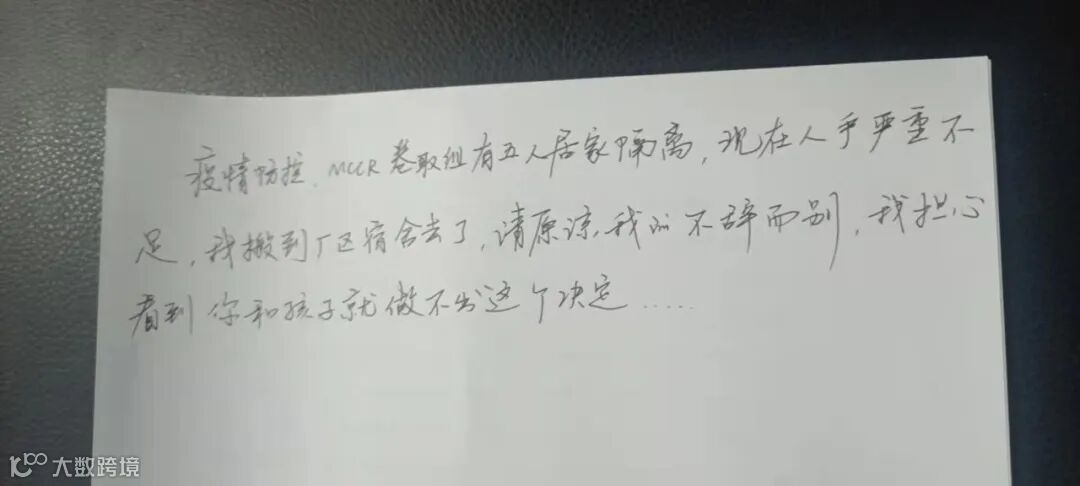 疫情防控、MCCR卷取组有五人居家隔离,现在人手严重不
足,我搬到厂区宿舍去了,请原谅我的不辞而别,我担心
看到你和孩子就做不出这个决定……
大数跨境